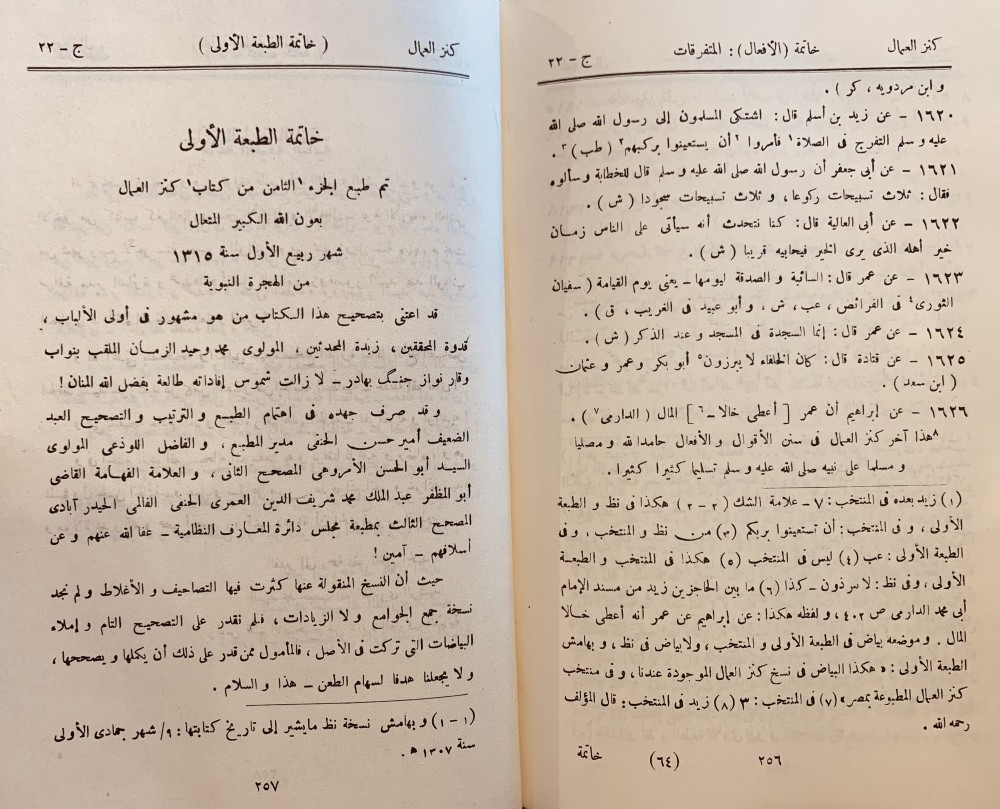 كنز العمال خاتمة (الأفعال): المتفرقات ج - ٢٢
و ابن مردويه ، كر ) .
١٦٢٠ - عن زيد بن أسلم قال: اشتكى المسلمون إلى رسول الله صلى الله
عليه و سلم التفرج فى الصلاة١ فأمروا ٢أن يستعينوا بركبهم٢ ( طب )٣ .
١٦٢١ - عن أبى جعفر أن رسول الله صلى الله عليه و سلم قال للخطابة و سألوه
فقال: ثلاث تسبيحات ركوعا ، و ثلاث تسبيحات سجودا ( ش ) .
١٦٢٢ - عن أبى العالية قال: كنا نتحدث أنه سيأتى على الناس زمان
خير أهله الذى يرى الخير فيحابيه قريبا ( ش ) .
١٦٢٣ - عن عمر قال: السائبة و الصدقة ليومها - يعنى يوم القيامة ( سفيان
الثورى٤ فى الفرائض ، عب ، ش ، و أبو عبيد فى الغريب ، ق ) .
١٦٢٤ - عن عمر قال: إنما السجدة فى المسجد و عند الذكر ( ش ) .
١٦٢٥ - عن قتادة قال: كان الخلفاء لا يبرزون٥ أبو بكر و عمر و عثمان
( ابن سعد ) .
١٦٢٦ - عن إبراهيم أن عمر [ أعطى خالا -٦ ] المال ( الدارمى٧ ) .
٨هذا آخر كنز العمال فى سنن الأقوال و الأفعال حامدا لله و مصليا
و مسلما على نبيه صلى الله عليه و سلم تسليما كثيرا كثيرا .
(١) زيد بعده فى المنتخب: ٧ - علامة الشك (٢ - ٢) هكذا فى نظ و الطبعة
الأولى ، و فى المنتخب: أن تستعينوا بربكم (٣) من نظ و المنتخب ، و فى
الطبعة الأولى: عب (٤) ليس فى المنتخب (٥) هكذا فى المنتخب و الطبعة
الأولى ، و فى نظ: - كذا (٦) ما بين الحاجزين زيد من مسند الإمام
أبى محمد الدارمى ص ٤٠٢ ، و لفظه هكذا: عن إبراهيم عن عمر أنه أعطى خالا
المال . و موضعه بياض فى الطبعة الأولى و المنتخب ، و لا بياض فى نظ ، و بهامش
الطبعة الأولى: « هكذا البياض فى نسخ كنز العمال الموجودة عندنا ، و فى منتخب
كنز العمال المطبوعة بمصر » (٧) فى المنتخب: ٣ (٨) زيد فى المنتخب: قال المؤلف
رحمه الله .
٢٥٦ (٦٤) خاتمة
كنز العمال ( خاتمة الطبعة الأولى ) ج - ٢٢
خاتمة الطبعة الأولى
تم طبع الجزء ١الثامن من كتاب١ كنز العمال
بعون الله الكبير المتعال
شهر ربيع الأول سنة ١٣١٥
من الهجرة النبوية
قد اعتنى بتصحيح هذا الكتاب من هو مشهور فى أولى الألباب ،
قدوة المحققين ، زبدة المحدثين ، المولوى محمد وحيد الزمان الملقب بنواب
وقار نواز جنگ بهادر - لا زالت شموس إفاداته طالعة بفضل الله المنان !
و قد صرف جهده فى اهتمام الطبع و الترتيب و التصحيح العبد
الضعيف أمير حسن الحنفى مدير المطبع ، و الفاضل اللوذعى المولوى
السيد أبو الحسن الأمروهى المصحح الثانى ، و العلامة الفهامة القاضى
أبو المظفر عبد الملك محمد شريف الدين العمرى الحنفى الفالمى الحيدر آبادى
المصحح الثالث بمطبعة مجلس دائرة المعارف النظامية - عفا الله عنهم و عن
أسلافهم - آمين !
حيث أن النسخ المنقولة عنها كثرت فيها التصاحيف و الأغلاط و لم نجد
نسخة جمع الجوامع و لا الزيادات ، فلم نقدر على التصحيح التام و إملاء
البياضات التى تركت فى الأصل ، فالمأمول ممن قدر على ذلك أن يكملها و يصححها ،
و لا يجعلنا هدفا لسهام الطعن - هذا و السلام .
(١ - ١) و بهامش نسخة نظ ما يشير إلى تاريخ كتابتها: ٩/ شهر جمادى الأولى
سنة ١٣٠٧ هـ .
٢٥٧